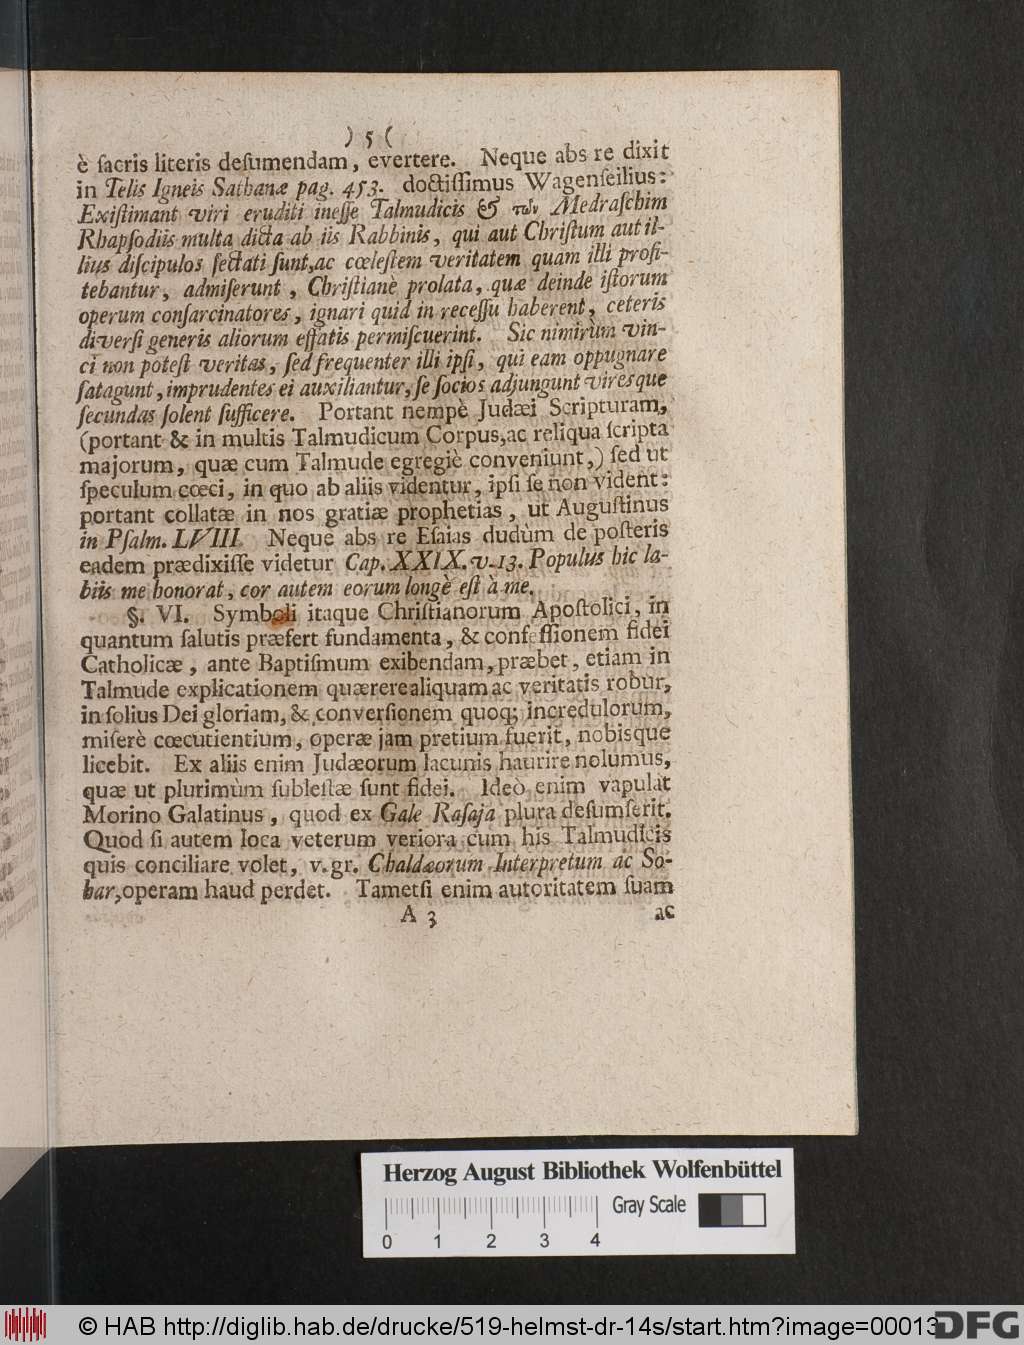 ) 5 (
è ſacris literis deſumendam, evertere. Neque abs re dixit
in Telis Igneis Sathanæ pag. 453. doctiſſimus Wagenſeilius:
Exiſtimant viri eruditi ineſſe Talmudicis & τῶν Medraſchim
Rhapſodiis multa dicta ab iis Rabbinis, qui aut Chriſtum aut il-
lius diſcipulos ſectati ſunt,ac cœleſtem veritatem quam illi profi-
tebantur, admiſerunt, Chriſtianè prolata, quæ deinde iſtorum
operum conſarcinatores, ignari quid in receſſu haberent, ceteris
diverſi generis aliorum effatis permiſcuerint. Sic nimirùm vin-
ci non poteſt veritas, ſed frequenter illi ipſi, qui eam oppugnare
ſatagunt, imprudentes ei auxiliantur, ſe ſocios adjungunt viresque
ſecundas ſolent ſufficere. Portant nempè Judæi Scripturam,
(portant & in multis Talmudicum Corpus,ac reliqua ſcripta
majorum, quæ cum Talmude egregiè conveniunt,) ſed ut
ſpeculum cœci, in quo ab aliis videntur, ipſi ſe non vident:
portant collatæ in nos gratiæ prophetias, ut Auguſtinus
in Pſalm. LVIII. Neque abs re Eſaias dudùm de poſteris
eadem prædixiſſe videtur Cap. XXIX. v. 13. Populus hic la-
biis me honorat, cor autem eorum longè eſt à me.
§. VI. Symboli itaque Chriſtianorum Apoſtolici, in
quantum ſalutis præfert fundamenta, & confeſſionem fidei
Catholicæ, ante Baptiſmum exibendam, præbet, etiam in
Talmude explicationem quærere aliquam ac veritatis robur,
in ſolius Dei gloriam, & converſionem quoq; incredulorum,
miſerè cœcutientium, operæ jam pretium fuerit, nobisque
licebit. Ex aliis enim Judæorum lacunis haurire nolumus,
quæ ut plurimùm ſubleſtæ ſunt fidei. Ideò enim vapulat
Morino Galatinus, quod ex Gale Raſaja plura deſumſerit.
Quod ſi autem loca veterum veriora cum his Talmudicis
quis conciliare volet, v. gr. Chaldæorum Interpretum ac So-
har, operam haud perdet. Tametſi enim autoritatem ſuam
A 3 ac
Herzog August Bibliothek Wolfenbüttel
Gray Scale
0 1 2 3 4
© HAB http://diglib.hab.de/drucke/519-helmst-dr-14s/start.htm?image=00013
DFG